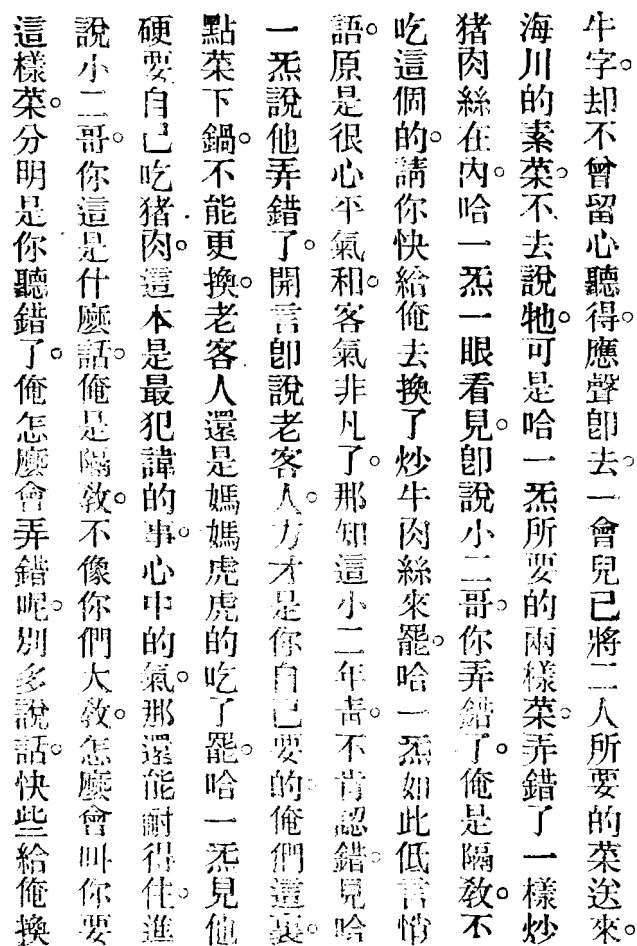 牛字。却不曾留心聽得。應聲卽去。一會兒已將二人所要的菜送來。
海川的素菜。不去說牠。可是哈一炁所要的兩樣菜。弄錯了一樣炒
猪肉絲在內。哈一炁一眼看見。卽說小二哥。你弄錯了。俺是隔敎。不
吃這個的。請你快給俺去換了炒牛肉絲來罷。哈一炁如此低言悄
語。原是很心平氣和。客氣非凡了。那知這小二年靑。不肯認錯。見哈
一炁說他弄錯了。開言卽說老客人。方才是你自己要的。俺們這裏。
點菜下鍋。不能更換。老客人還是媽媽虎虎的吃了罷。哈一炁見他
硬要自己吃猪肉。這本是最犯諱的事。心中的氣。那還能耐得住。進
說小二哥。你這是什麼話。俺是隔敎。不像你們大敎。怎麼會叫你要
這樣菜。分明是你聽錯了。俺怎麼會弄錯呢。別多說話。快些給俺換